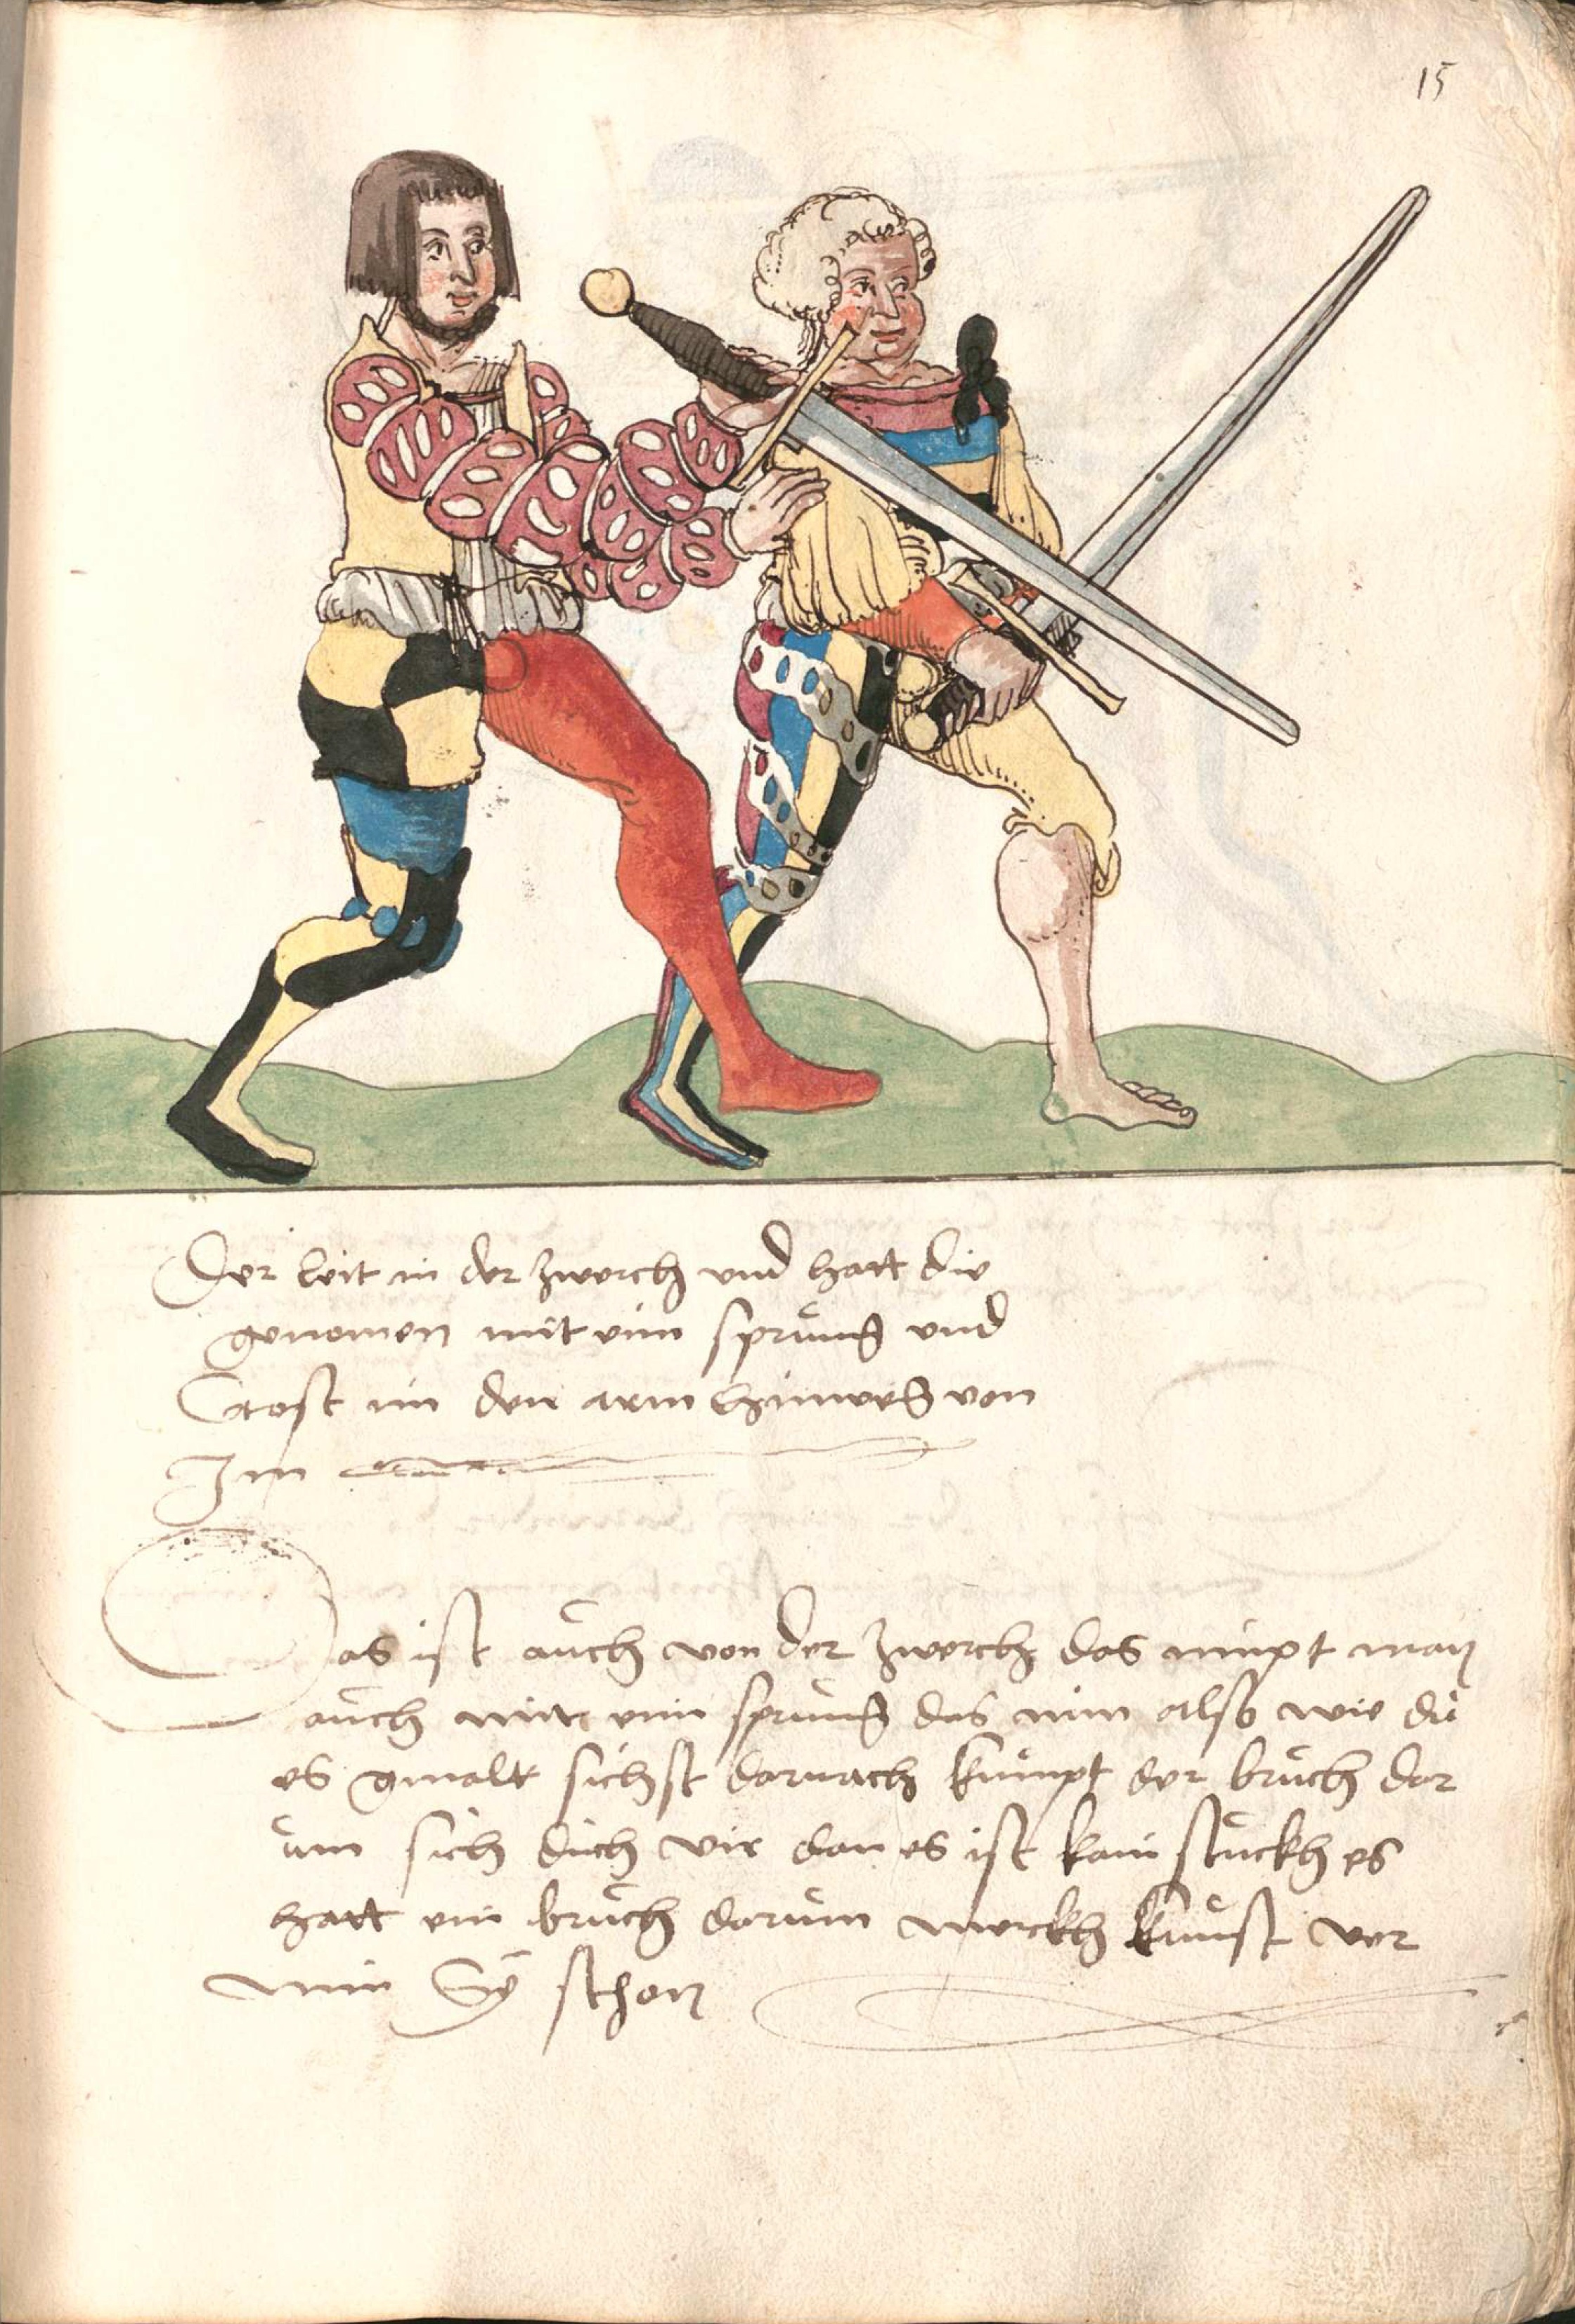 15
Der leit in der zwerch und hatt die
genomen mit eim sprung und
stost im den arm hinweg von
Im
Das ist auch von der zwerch das nimpt man
auch mit eim sprung das nim also wie du
es gmalt sichst darnach kumpt der bruch dar
um sich dich vir dan es ist kain stuckh es
hatt ein bruch darum merckh kunst ver
nim sy schon